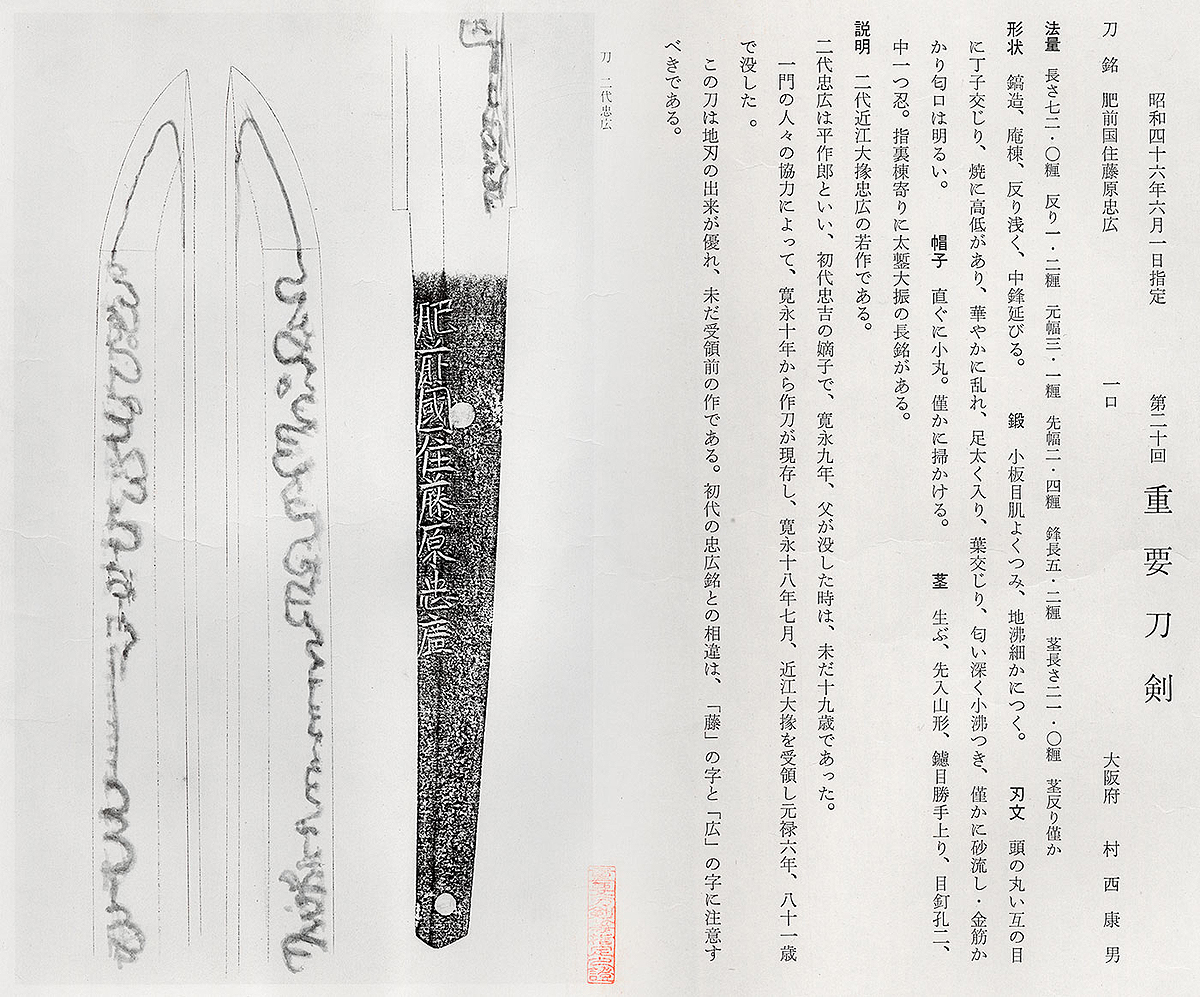 昭和四十六年六月一日指定　第二十回　重要刀剣
刀　銘　肥前国住藤原忠広　一口　大阪府　村西康男
法量　長さ七二・〇糎　反り一・二糎　元幅三・一糎　先幅二・四糎　鋒長五・二糎　茎長さ二一・〇糎　茎反り僅か
形状　鎬造、庵棟、反り浅く、中鋒延びる。　鍛　小板目肌よくつみ、地沸細かにつく。　刃文　頭の丸い互の目
に丁子交じり、焼に高低があり、華やかに乱れ、足太く入り、葉交じり、匂い深く小沸つき、僅かに砂流し・金筋か
かり匂口は明るい。　帽子　直ぐに小丸。僅かに掃かける。　茎　生ぶ、先入山形、鑢目勝手上り、目釘孔二、
中一つ忍。指裏棟寄りに太鏨大振の長銘がある。
説明　二代近江大掾忠広の若作である。
二代忠広は平作郎といい、初代忠吉の嫡子で、寛永九年、父が没した時は、未だ十九歳であった。
一門の人々の協力によって、寛永十年から作刀が現存し、寛永十八年七月、近江大掾を受領し元禄六年、八十一歳
で没した。
この刀は地刃の出来が優れ、未だ受領前の作である。初代の忠広銘との相違は、「藤」の字と「広」の字に注意す
べきである。
刀　二代忠広
肥前國住藤原忠廣